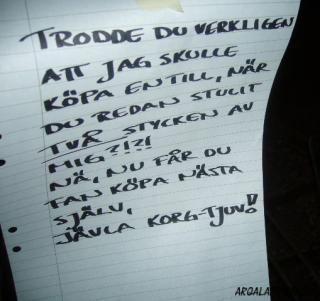 TRODDE DU VERKLIGEN
ATT JAG SKULLE
KÖPA EN TILL, NÄR
DU REDAN STULIT
TVÅ STYCKEN AV
MIG?!?!
NÄ, NU FÅR DU
FAN KÖPA NÄSTA
SJÄLV,
JÄVLA KORG-TJUV!